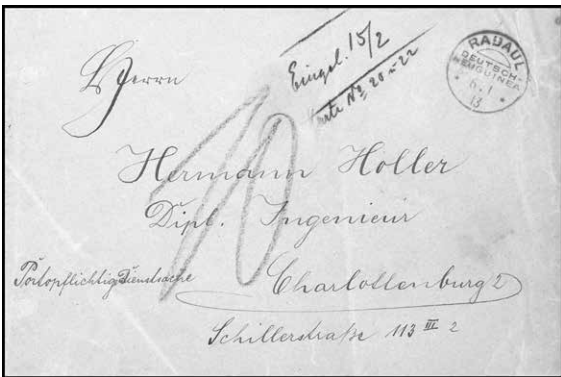 Eingel. 15/2
Karte Nº 20 u 22
RABAUL
DEUTSCH-
NEUGUINEA
13
Herrn
Hermann Holler
Dipl. Ingenieur
10
Portopflichtige Dienstsache
Charlottenburg 2
Schillerstraße 113 III 2